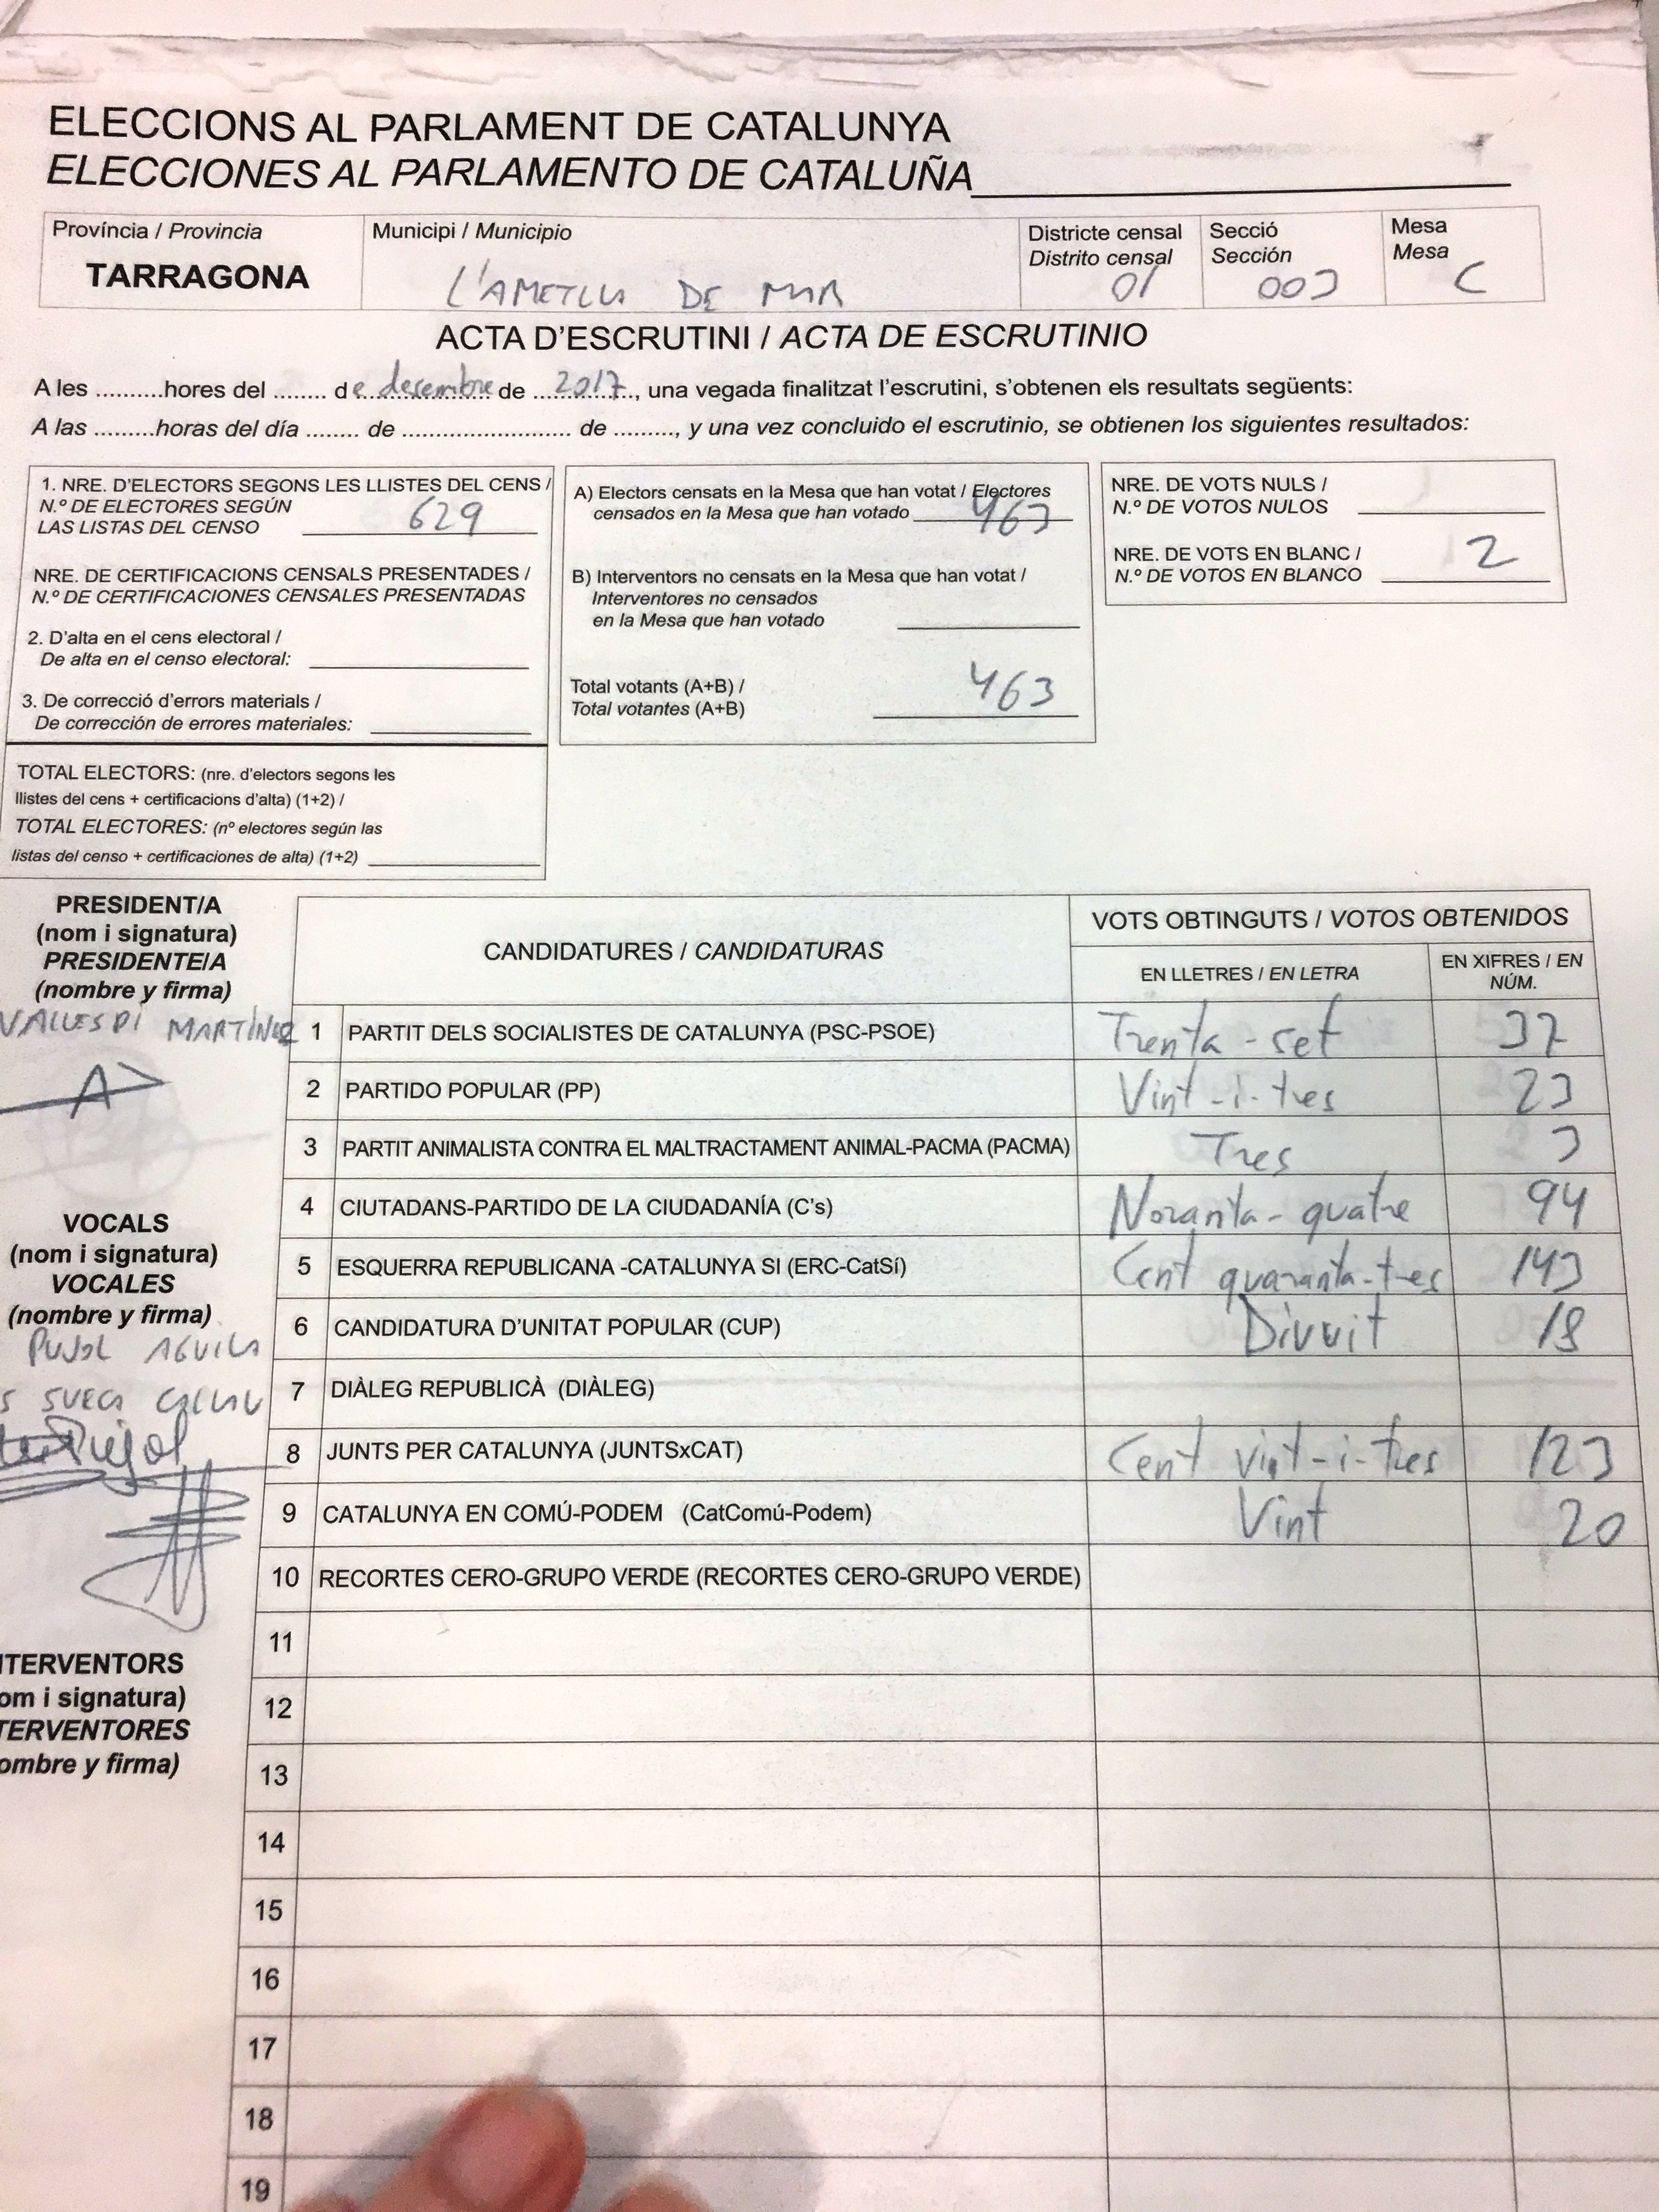 ELECCIONS AL PARLAMENT DE CATALUNYA
ELECCIONES AL PARLAMENTO DE CATALUÑA
Província / Provincia
TARRAGONA
Municipi / Municipio
L'AMETLLA DE MAR
Districte censal
Distrito censal
01
Secció
Sección
003
Mesa
Mesa
C
ACTA D'ESCRUTINI / ACTA DE ESCRUTINIO
A les ..........hores del ........ de desembre de 2017, una vegada finalitzat l'escrutini, s'obtenen els resultats següents:
A las .........horas del día ........ de ........................ de ........., y una vez concluido el escrutinio, se obtienen los siguientes resultados:
1. NRE. D'ELECTORS SEGONS LES LLISTES DEL CENS /
N.º DE ELECTORES SEGÚN
LAS LISTAS DEL CENSO 629
NRE. DE CERTIFICACIONS CENSALS PRESENTADES /
N.º DE CERTIFICACIONES CENSALES PRESENTADAS
2. D'alta en el cens electoral /
De alta en el censo electoral:
3. De correcció d'errors materials /
De corrección de errores materiales:
TOTAL ELECTORS: (nre. d'electors segons les
llistes del cens + certificacions d'alta) (1+2) /
TOTAL ELECTORES: (nº electores según las
listas del censo + certificaciones de alta) (1+2)
A) Electors censats en la Mesa que han votat / Electores
censados en la Mesa que han votado 463
B) Interventors no censats en la Mesa que han votat /
Interventores no censados
en la Mesa que han votado
Total votants (A+B) /
Total votantes (A+B) 463
NRE. DE VOTS NULS /
N.º DE VOTOS NULOS
NRE. DE VOTS EN BLANC /
N.º DE VOTOS EN BLANCO 2
PRESIDENT/A
(nom i signatura)
PRESIDENTE/A
(nombre y firma)
VALLESPI MARTÍNEZ
VOCALS
(nom i signatura)
VOCALES
(nombre y firma)
PUJOL AGUILA
Pujol
TERVENTORS
om i signatura)
TERVENTORES
ombre y firma)
CANDIDATURES / CANDIDATURAS
VOTS OBTINGUTS / VOTOS OBTENIDOS
EN LLETRES / EN LETRA
EN XIFRES / EN
NÚM.
1 PARTIT DELS SOCIALISTES DE CATALUNYA (PSC-PSOE) Trenta-set 37
2 PARTIDO POPULAR (PP) Vint-i-tres 23
3 PARTIT ANIMALISTA CONTRA EL MALTRACTAMENT ANIMAL-PACMA (PACMA) Tres 3
4 CIUTADANS-PARTIDO DE LA CIUDADANÍA (C's) Noranta-quatre 94
5 ESQUERRA REPUBLICANA -CATALUNYA SI (ERC-CatSí) Cent quaranta-tres 143
6 CANDIDATURA D'UNITAT POPULAR (CUP) Divuit 18
7 DIÀLEG REPUBLICÀ (DIÀLEG)
8 JUNTS PER CATALUNYA (JUNTSxCAT) Cent vint-i-tres 123
9 CATALUNYA EN COMÚ-PODEM (CatComú-Podem) Vint 20
10 RECORTES CERO-GRUPO VERDE (RECORTES CERO-GRUPO VERDE)
11
12
13
14
15
16
17
18
19